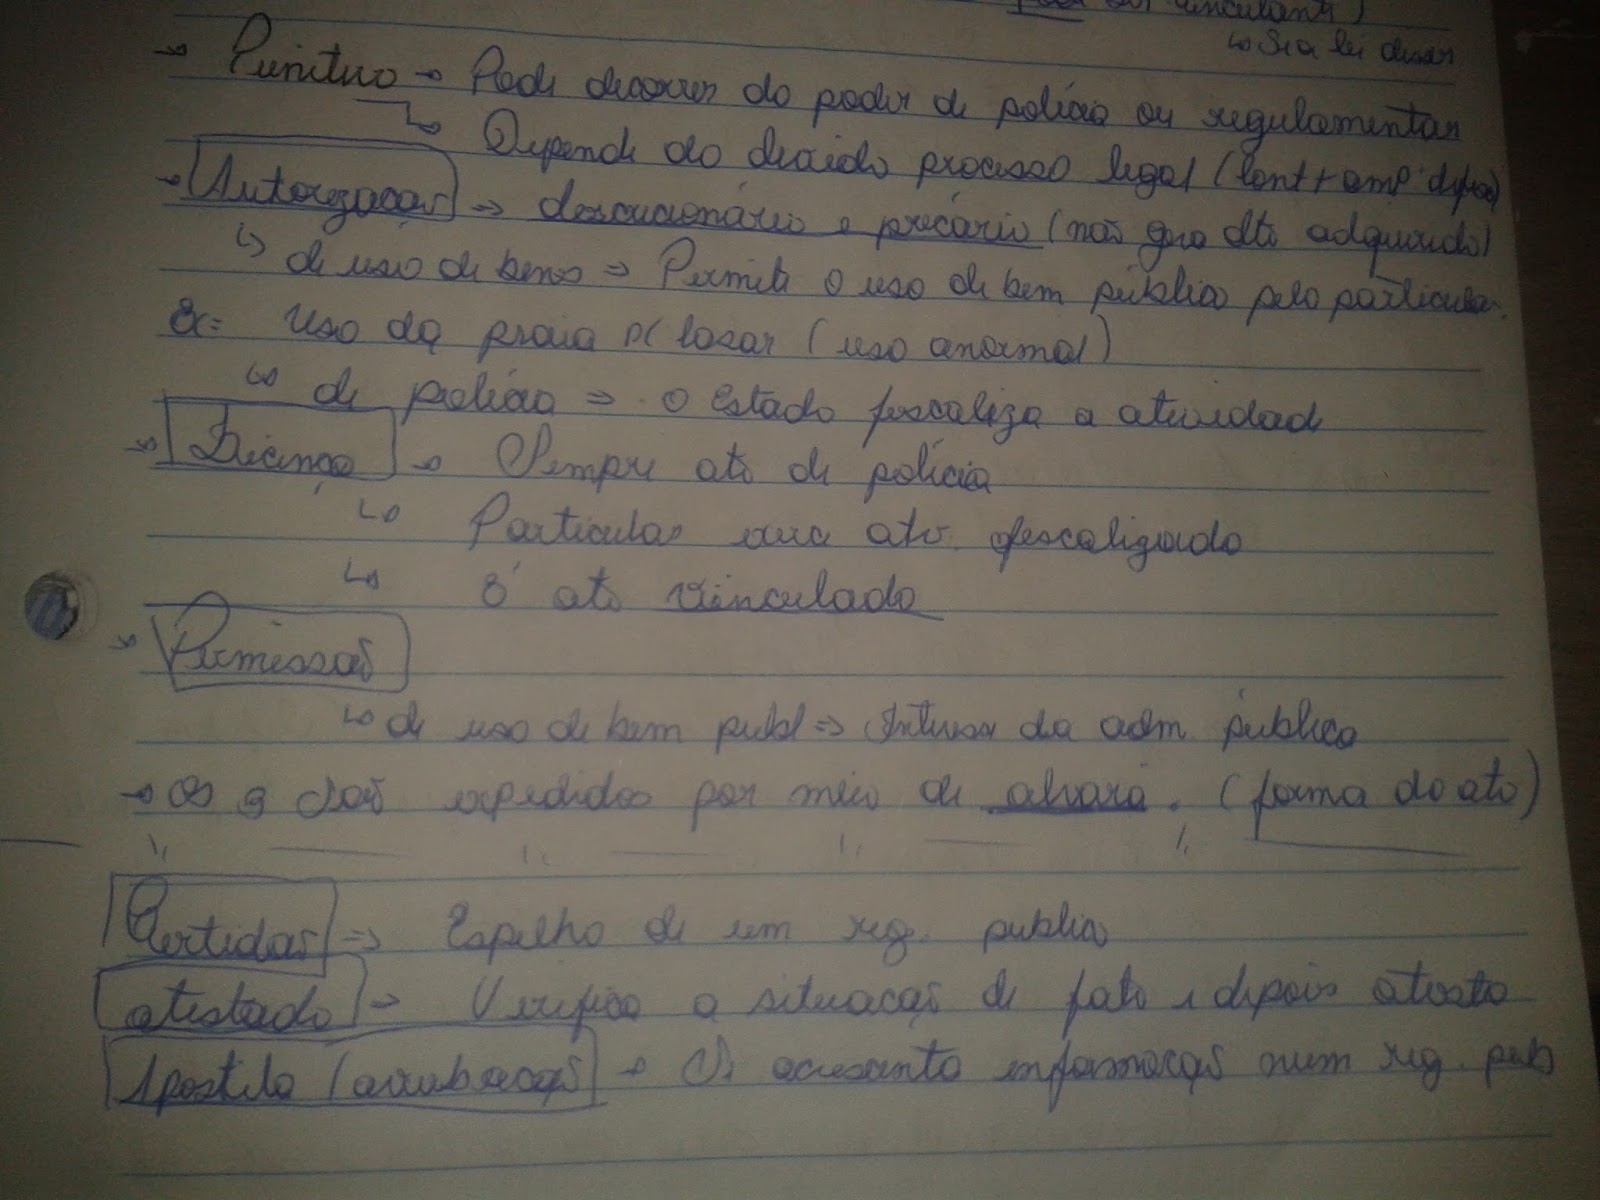 pode ser vinculante)
↳ Se a lei disser
→ Punitivo → Pode decorrer do poder de polícia ou regulamentar
↳ Depende do devido processo legal (cont + amp. defesa)
→ Autorização → discricionário e precário (não gera dto adquirido)
↳ de uso de bens ⇒ Permite o uso de bem público pelo particular.
Ex: Uso da praia p/ casar (uso anormal)
↳ de polícia ⇒ o Estado fiscaliza a atividade
→ Licença → Sempre ato de polícia
↳ Particular ato fiscalizado
↳ É ato vinculado
→ Permissão
↳ de uso de bem publ ⇒ Interesse da adm. pública
→ Os 3 são expedidos por meio de alvará. (forma do ato)
Certidão ⇒ Espelho de um reg. público
atestado → Verifica a situação de fato e depois atesta
Apostila (averbação) → acrescenta informação num reg. pub